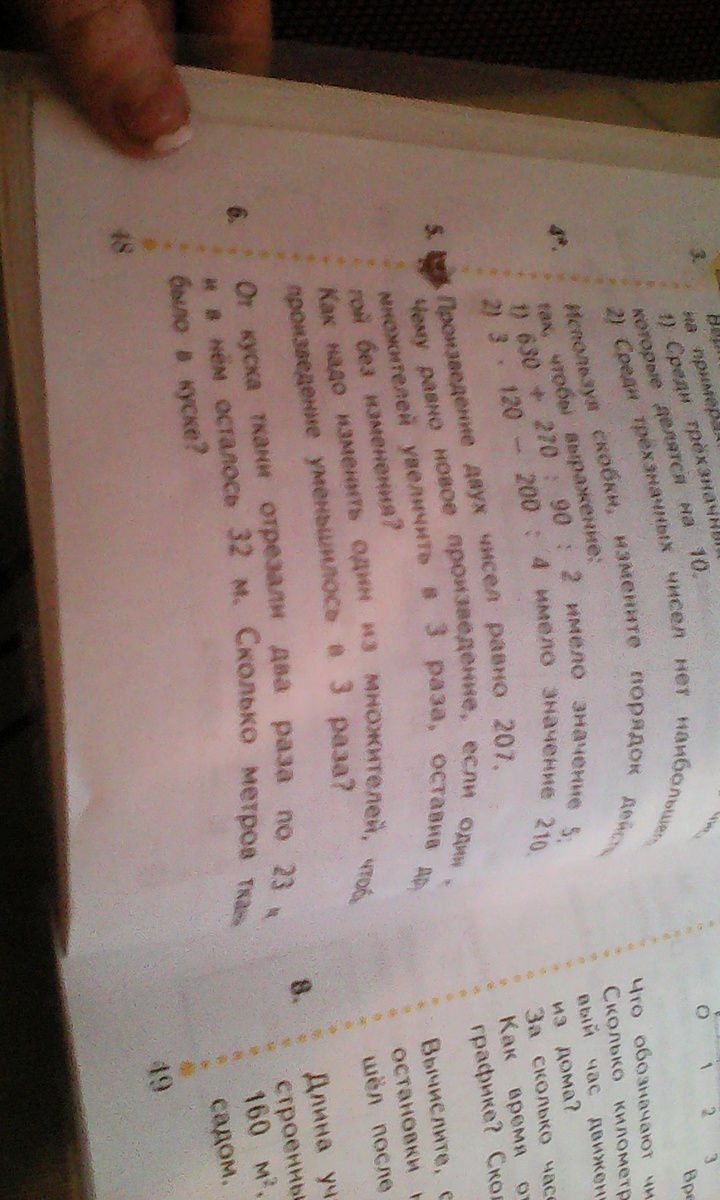 3.
на примерах
1) Среди трёхзначных
которые делятся на 10.
2) Среди трёхзначных чисел нет наибольшего
4*.
Используя скобки, измените порядок дейст
так, чтобы выражение:
1) 630 + 270 : 90 : 2 имело значение 5;
2) 3 · 120 – 200 : 4 имело значение 210.
5.
Произведение двух чисел равно 207.
Чему равно новое произведение, если один
множителей увеличить в 3 раза, оставив др
гой без изменения?
Как надо изменить один из множителей, чтоб
произведение уменьшилось в 3 раза?
6.
От куска ткани отрезали два раза по 23 м
и в нём осталось 32 м. Сколько метров ткан
было в куске?
48
0 1 2 3
Вре
Что обозначают чи
Сколько километр
вый час движен
из дома?
За сколько часо
Как время от
графике? Скол
Вычислите, с
остановки
шёл после
8.
Длина уч
строенны
160 м²,
садом.
49